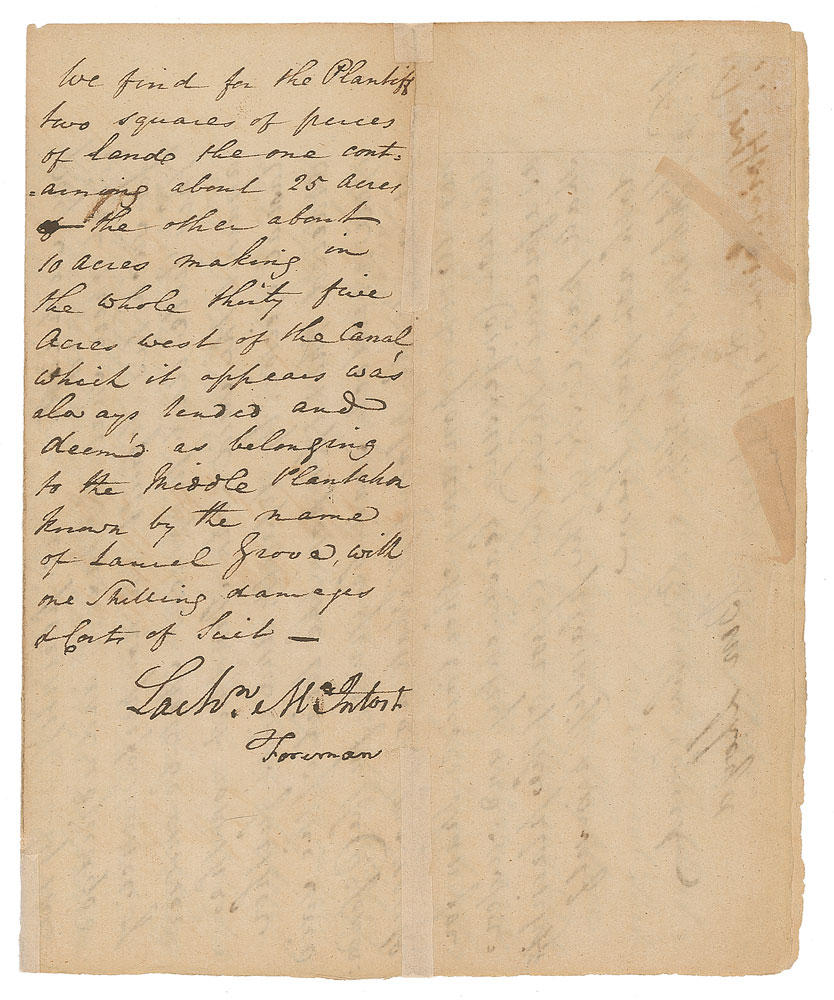 We find for the Plantiff
two squares of peices
of lands the one cont=
=aining about 25 acres
& the other about
10 acres making in
the whole thirty five
Acres west of the Canal,
which it appears was
always tended and
deem'd as belonging
to the Middle Plantation
known by the name
of Laurel Grove, with
one Shilling damages
& Costs of Suit —
Lachn. McIntosh
Foreman